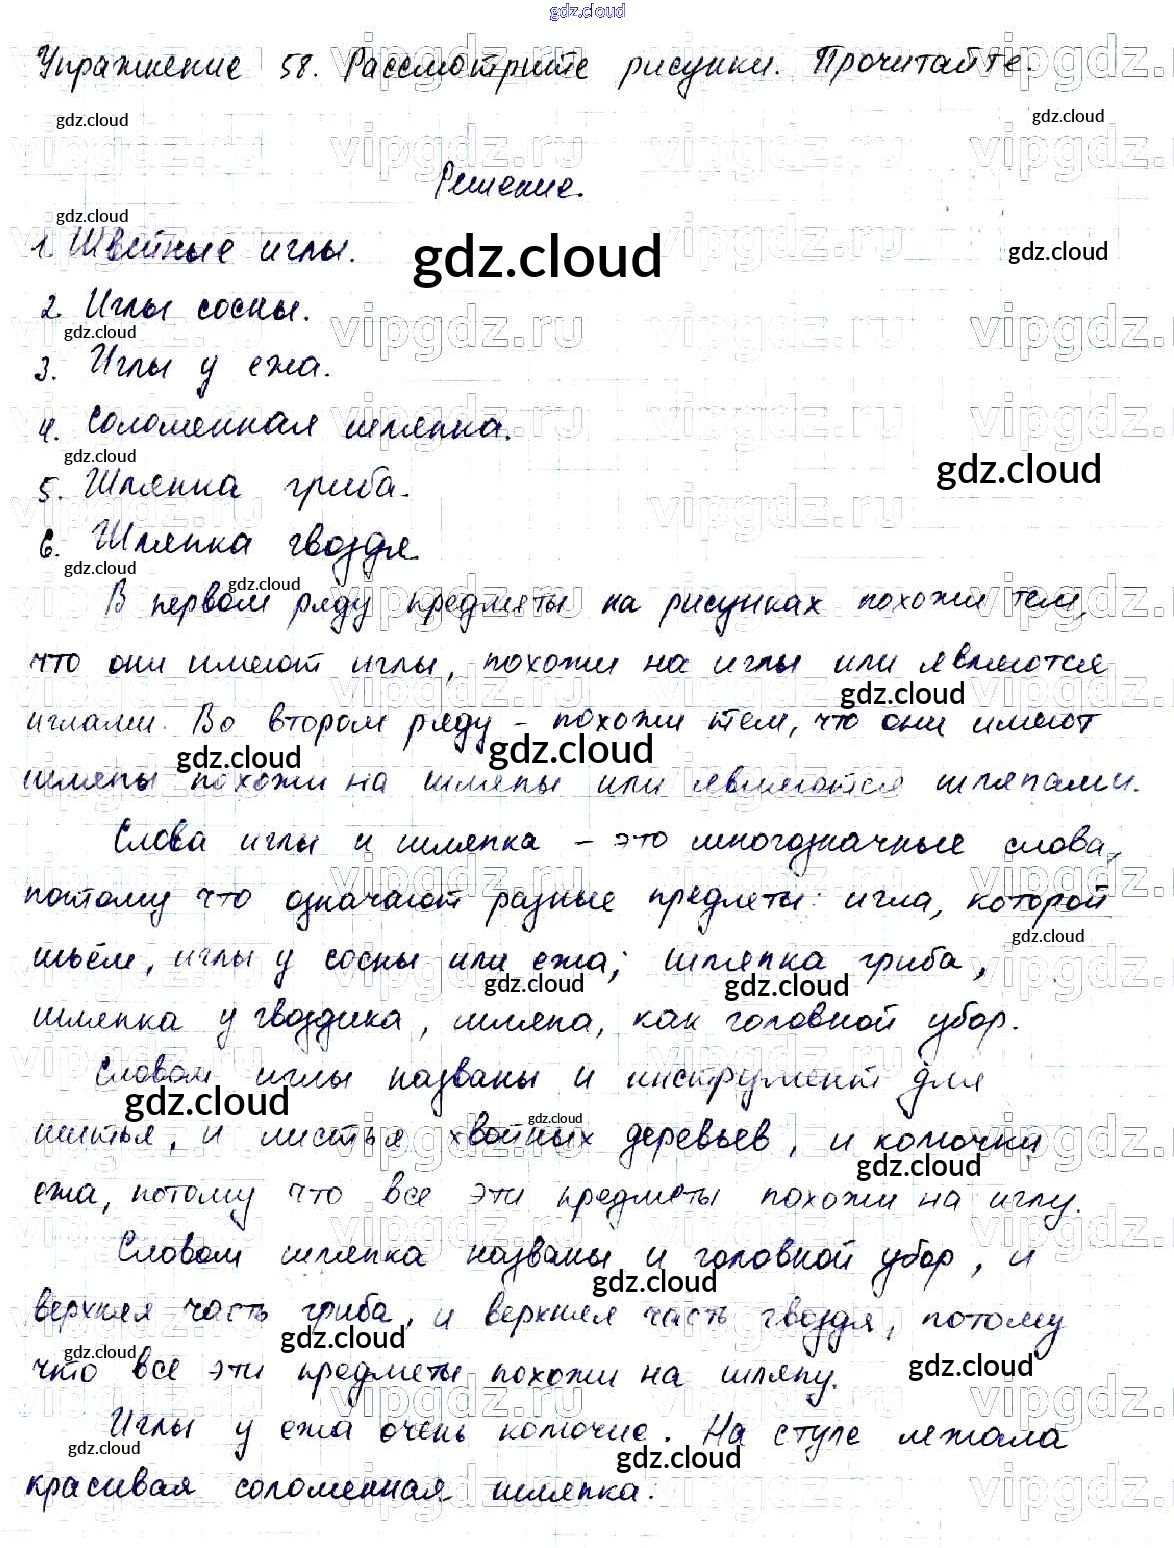 gdz.cloud
Упражнение 58. Рассмотрите рисунки. Прочитайте.
gdz.cloud gdz.cloud
Решение.
gdz.cloud
1. Швейные иглы.
gdz.cloud gdz.cloud
2. Иглы сосны.
gdz.cloud
3. Иглы у ежа.
4. Соломенная шляпка.
gdz.cloud gdz.cloud
5. Шляпка гриба.
6. Шляпка гвоздя.
gdz.cloud gdz.cloud
В первом ряду предметы на рисунках похожи тем,
что они имеют иглы, похожи на иглы или являются
gdz.cloud
иглами. Во втором ряду - похожи тем, что они имеют
gdz.cloud gdz.cloud
шляпы похожи на шляпы или являются шляпами.
Слова иглы и шляпка – это многозначные слова,
потому что означают разные предметы: игла, которой
gdz.cloud
шьём, иглы у сосны или ежа; шляпка гриба,
gdz.cloud gdz.cloud
шляпка у гвоздика, шляпа, как головной убор.
Словом иглы названы и инструмент для
gdz.cloud gdz.cloud
шитья, и листья хвойных деревьев, и колючки
gdz.cloud
ежа, потому что все эти предметы похожи на иглу.
Словом шляпка названы и головной убор, и
gdz.cloud
верхняя часть гриба, и верхняя часть гвоздя, потому
gdz.cloud gdz.cloud gdz.cloud
что все эти предметы похожи на шляпу.
Иглы у ежа очень колючие. На стуле лежала
gdz.cloud gdz.cloud
красивая соломенная шляпка.
vipgdz.ru